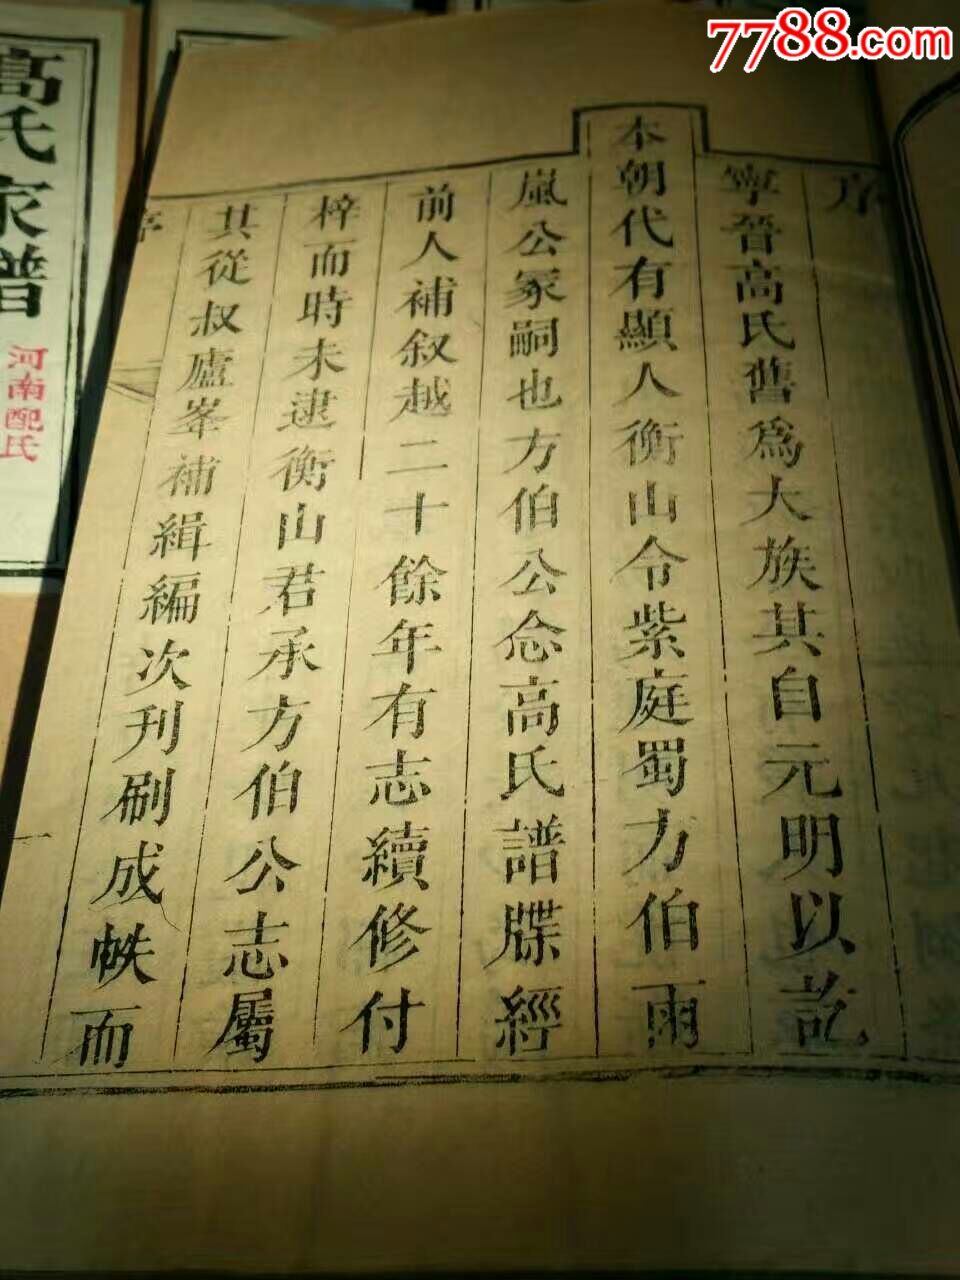 7788.com
序
寧晉高氏舊爲大族其自元明以訖
本朝代有顯人衡山令紫庭蜀方伯雨
嵐公冢嗣也方伯公念高氏譜牒經
前人補叙越二十餘年有志續修付
梓而時未逮衡山君承方伯公志屬
其從叔廬峯補緝編次刋刷成帙而
序
一
高氏家譜
河南配氏